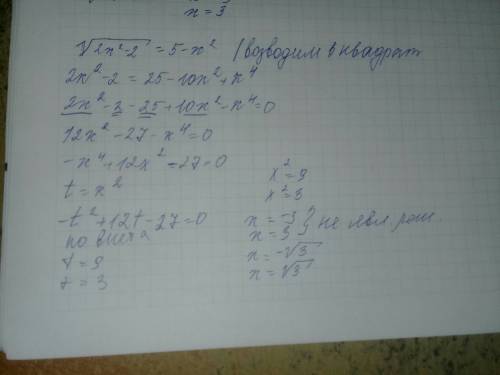 x = 3
√2x²-2 = 5-x² / возводим в квадрат
2x²-2 = 25-10x²+x⁴
2x²-2-25+10x²-x⁴=0
12x²-27-x⁴=0
-x⁴+12x²-27=0
t = x²
-t²+12t-27=0
по Виета
t=9
t=3
x²=9
x²=3
x=-3 } не явл. реш.
x=3
x=-√3
x=√3